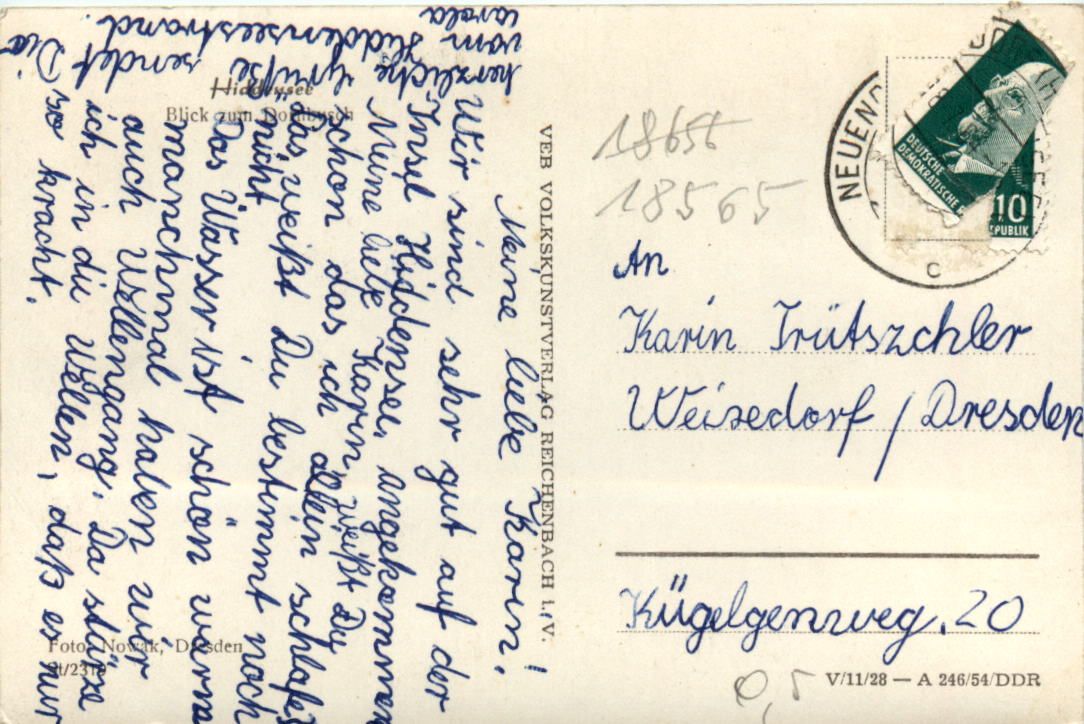 Hiddensee
Blick zum Dornbusch
Meine liebe Karin!
Wir sind sehr gut auf der
Insel Hiddensee, angekommen
Meine liebe Karin, weißt Du
schon das ich allein schlafe?
Das weißt Du bestimmt noch
nicht
Das Wasser ist schön warm
manchmal haben wir
auch Wellengang. Da stürze
ich in die Wellen, daß er nur
so kracht.
herzliche Grüße sendet Dir
vom Hiddenseestrand
Carola
Foto: Nowak, Dresden
VEB VOLKSKUNSTVERLAG REICHENBACH i. V.
18565
NEUEND
c
DEUTSCHE
DEMOKRATISCHE
10
EPUBLIK
An
Karin Trützschler
Weixdorf / Dresden
Kügelgenweg. 20
0,5
V/11/28 — A 246/54/DDR